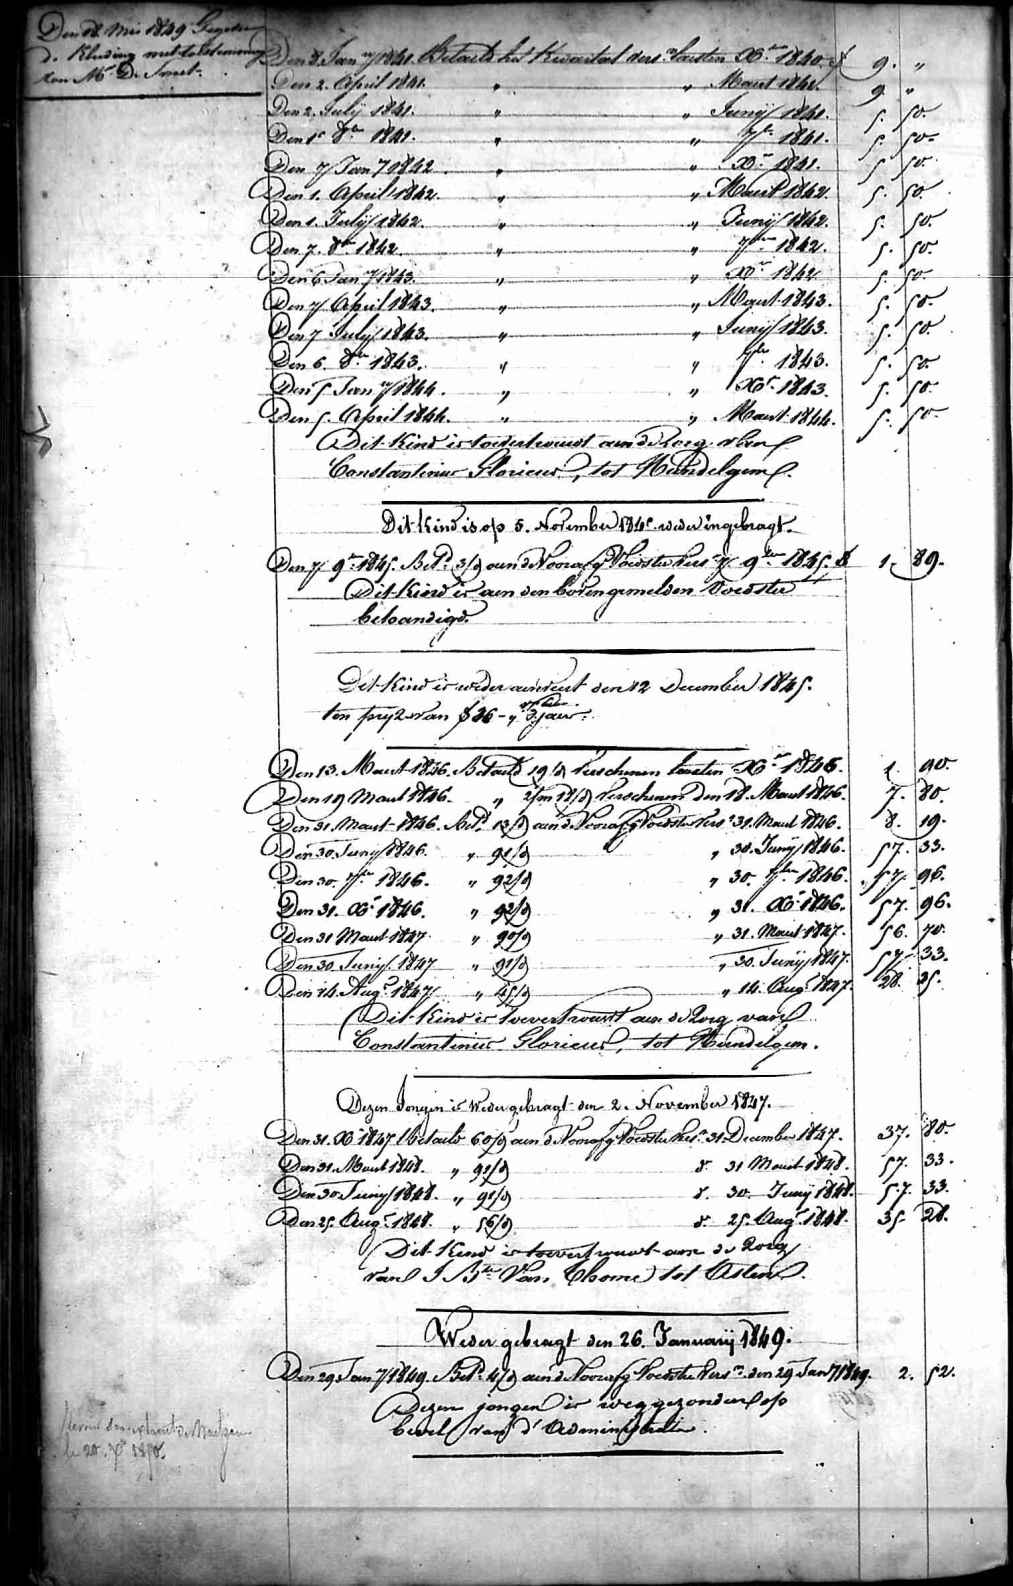 Den 18. Mei 1849 Gegeven
de Kleding met toestemming
van Mr. De Smet.
Den 8. Jany 1841. Betaeld het Kwartael vers. laesten Xber 1840. f 9. "
Den 2. April 1841. " " Maert 1841. 9. "
Den 2. July 1841. " " Junij 1841. 5. 50.
Den 1r 8ber 1841. " " 7ber 1841. 5. 50.
Den 7 Jany 1842. " " Xber 1841. 5. 50.
Den 1. April 1842. " " Maert 1842. 5. 50.
Den 1. July 1842. " " Junij 1842. 5. 50.
Den 7. 8ber 1842. " " 7ber 1842. 5. 50.
Den 6 Jany 1843. " " Xber 1842 5. 50.
Den 7 April 1843. " " Maert 1843. 5. 50.
Den 7 July 1843. " " Junij 1843. 5. 50.
Den 6. 8ber 1843. " " 7ber 1843. 5. 50.
Den 5 Jany 1844. " " Xber 1843. 5. 50.
Den 5. April 1844. " " Maert 1844. 5. 50.
Dit Kind is toevertrouwt aen de Zorg van
Constantinus Glorieus, tot Hundelgem.
Dit Kind is op 5. November 1845 weder ingebragt.
Den 7 9ber 1845. Betd. 3/d aen de Voorsg Voedster vers. 7 9ber 1845. f 1. 89.
Dit Kind is aen den bovengemelden Voedster
behandigd.
Dit Kind is weder den 12 December 1845.
ten pryz van f 36 - "s jaer.
Den 13. Maert 1846. Betaeld 19/d verschenen laesten Xber 1845. 1. 90.
Den 19 Maert 1846. " 2/m 18/d verschenen den 18. Maert 1846. 7. 80.
Den 31. Maert 1846. Betd. 13/d aen de Voorsg Voedster vers. 31. Maert 1846. 8. 19.
Den 30. Juny 1846. " 91/d " 30. Juny 1846. 57. 33.
Den 30. 7ber 1846. " 92/d " 30. 7ber 1846. 57. 96.
Den 31. Xber 1846. " 92/d " 31. Xber 1846. 57. 96.
Den 31 Maert 1847. " 90/d " 31. Maert 1847. 56. 70.
Den 30 Junij 1847 " 91/d " 30. Junij 1847. 57. 33.
Den 14. Augt 1847. " 45/d " 14. Augt 1847. 28. 35.
Dit Kind is toevertrouwt aen de Zorg van
Constantinus Glorieus, tot Hundelgem.
Dezen Jongen is Weder gebragt den 2. November 1847.
Den 31. Xber 1847 Betaeld 60/d aen de Voorsg Voedster vers. 31. December 1847. 37. 80.
Den 31. Maert 1848. " 91/d " 31 Maert 1848. 57. 33.
Den 30 Juny 1848. " 91/d " 30. Juny 1848. 57. 33.
Den 25. Augt 1848. " 56/d " 25. Augt 1848. 35. 28.
Dit Kind is toevertrouwt aen de Zorg
van J. Bte Van Thome tot Astene.
Weder gebragt den 26. Januarij 1849.
Den 29 Jany 1849. Betd. 4/d aen de Voorsg Voedster vers. den 29 Jany 1849. 2. 52.
Dezen jongen is weggezonden op
bevel van d'administratie.
le 20. Xbre 1850.